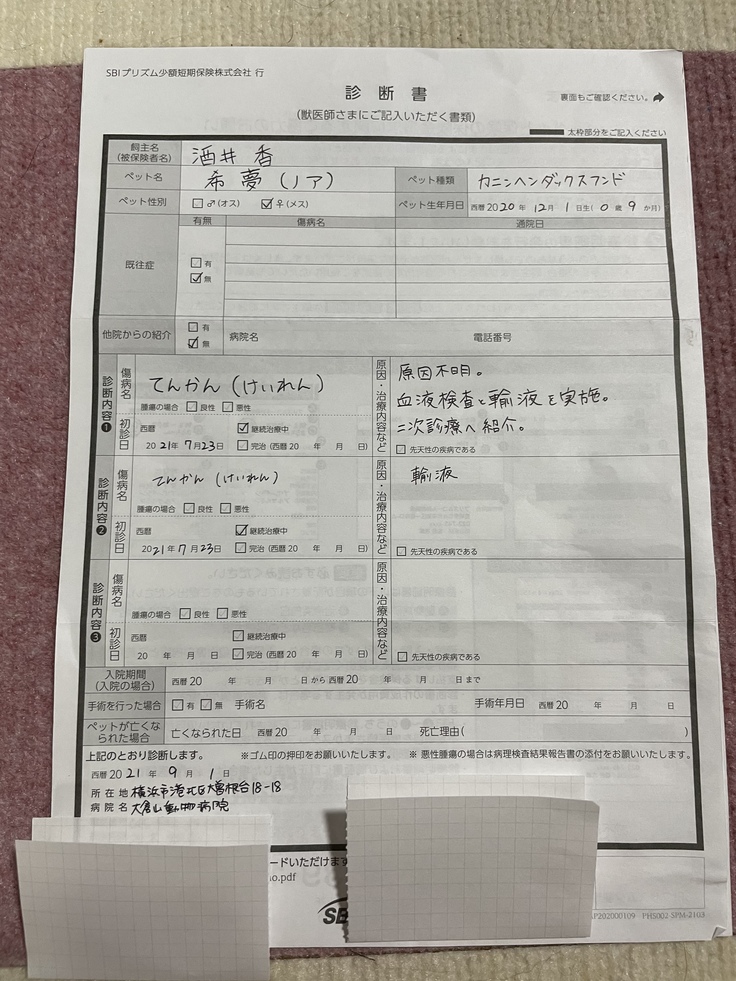 SBIプリズム少額短期保険株式会社 行
診 断 書
裏面もご確認ください。
(獣医師さまにご記入いただく書類)
太枠部分をご記入ください
飼主名
(被保険者名)
酒井 香
ペット名 希夢(ノア) ペット種類 カニンヘンダックスフンド
ペット性別 ♂(オス) ♀(メス) ペット生年月日 西暦 2020 年 12 月 1 日生( 0 歳 9 か月)
有無 傷病名 通院日
既往症
有
無
他院からの紹介
有
無
病院名 電話番号
診断内容❶
傷病名
てんかん (けいれん)
腫瘍の場合 良性 悪性
初診日
西暦 継続治療中
2021年 7月23日 完治 (西暦 20 年 月 日)
原因・治療内容など
原因不明。
血液検査と輸液を実施。
二次診療へ紹介。
先天性の疾病である
診断内容❷
傷病名
てんかん (けいれん)
腫瘍の場合 良性 悪性
初診日
西暦 継続治療中
2021年 7月23日 完治 (西暦 20 年 月 日)
原因・治療内容など
輸液
先天性の疾病である
診断内容❸
傷病名
腫瘍の場合 良性 悪性
初診日
西暦 継続治療中
20 年 月 日 完治 (西暦 20 年 月 日)
原因・治療内容など
先天性の疾病である
入院期間
(入院の場合)
西暦 20 年 月 日 から 西暦 20 年 月 日 まで
手術を行った場合 有 無 手術名 手術年月日 西暦 20 年 月 日
ペットが亡くな
られた場合
亡くなられた日 西暦 20 年 月 日 死亡理由( )
上記のとおり診断します。 ※ゴム印の押印をお願いいたします。 ※ 悪性腫瘍の場合は病理検査結果報告書の添付をお願いいたします。
西暦 2021 年 9 月 1 日
所 在 地 横浜市港北区大曽根台18-18
病 院 名 大倉山動物病院
ードいただけます
o.pdf
SB
AP202000109 PHS002-SPM-2103